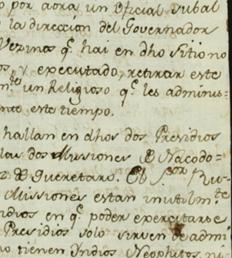 por aora un Oficial Subal
la direccion del Governador
Vezinos q.e hai en dho Sitio no
y executado, retirar este
un Religioso q.e les adminis-
este tiempo.
hallan en dhos dos Presidios
las dos Missiones de Nacodo-
de Queretaro. El S.or Ru-
Missiones estan inutilm.te
Indios en q.e poder exercitarse
Presidios solo sirven de admi
no tienen Indios Neophitos ni